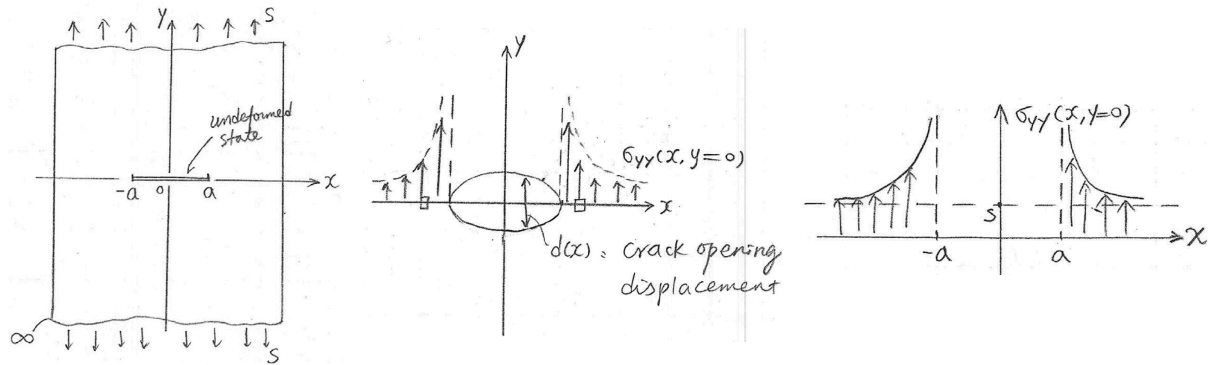 y
S
undeformed
state
-a
o
a
x
∞
S
y
σyy(x, y=0)
x
d(x): crack opening
displacement
σyy(x, y=0)
S
-a
a
x